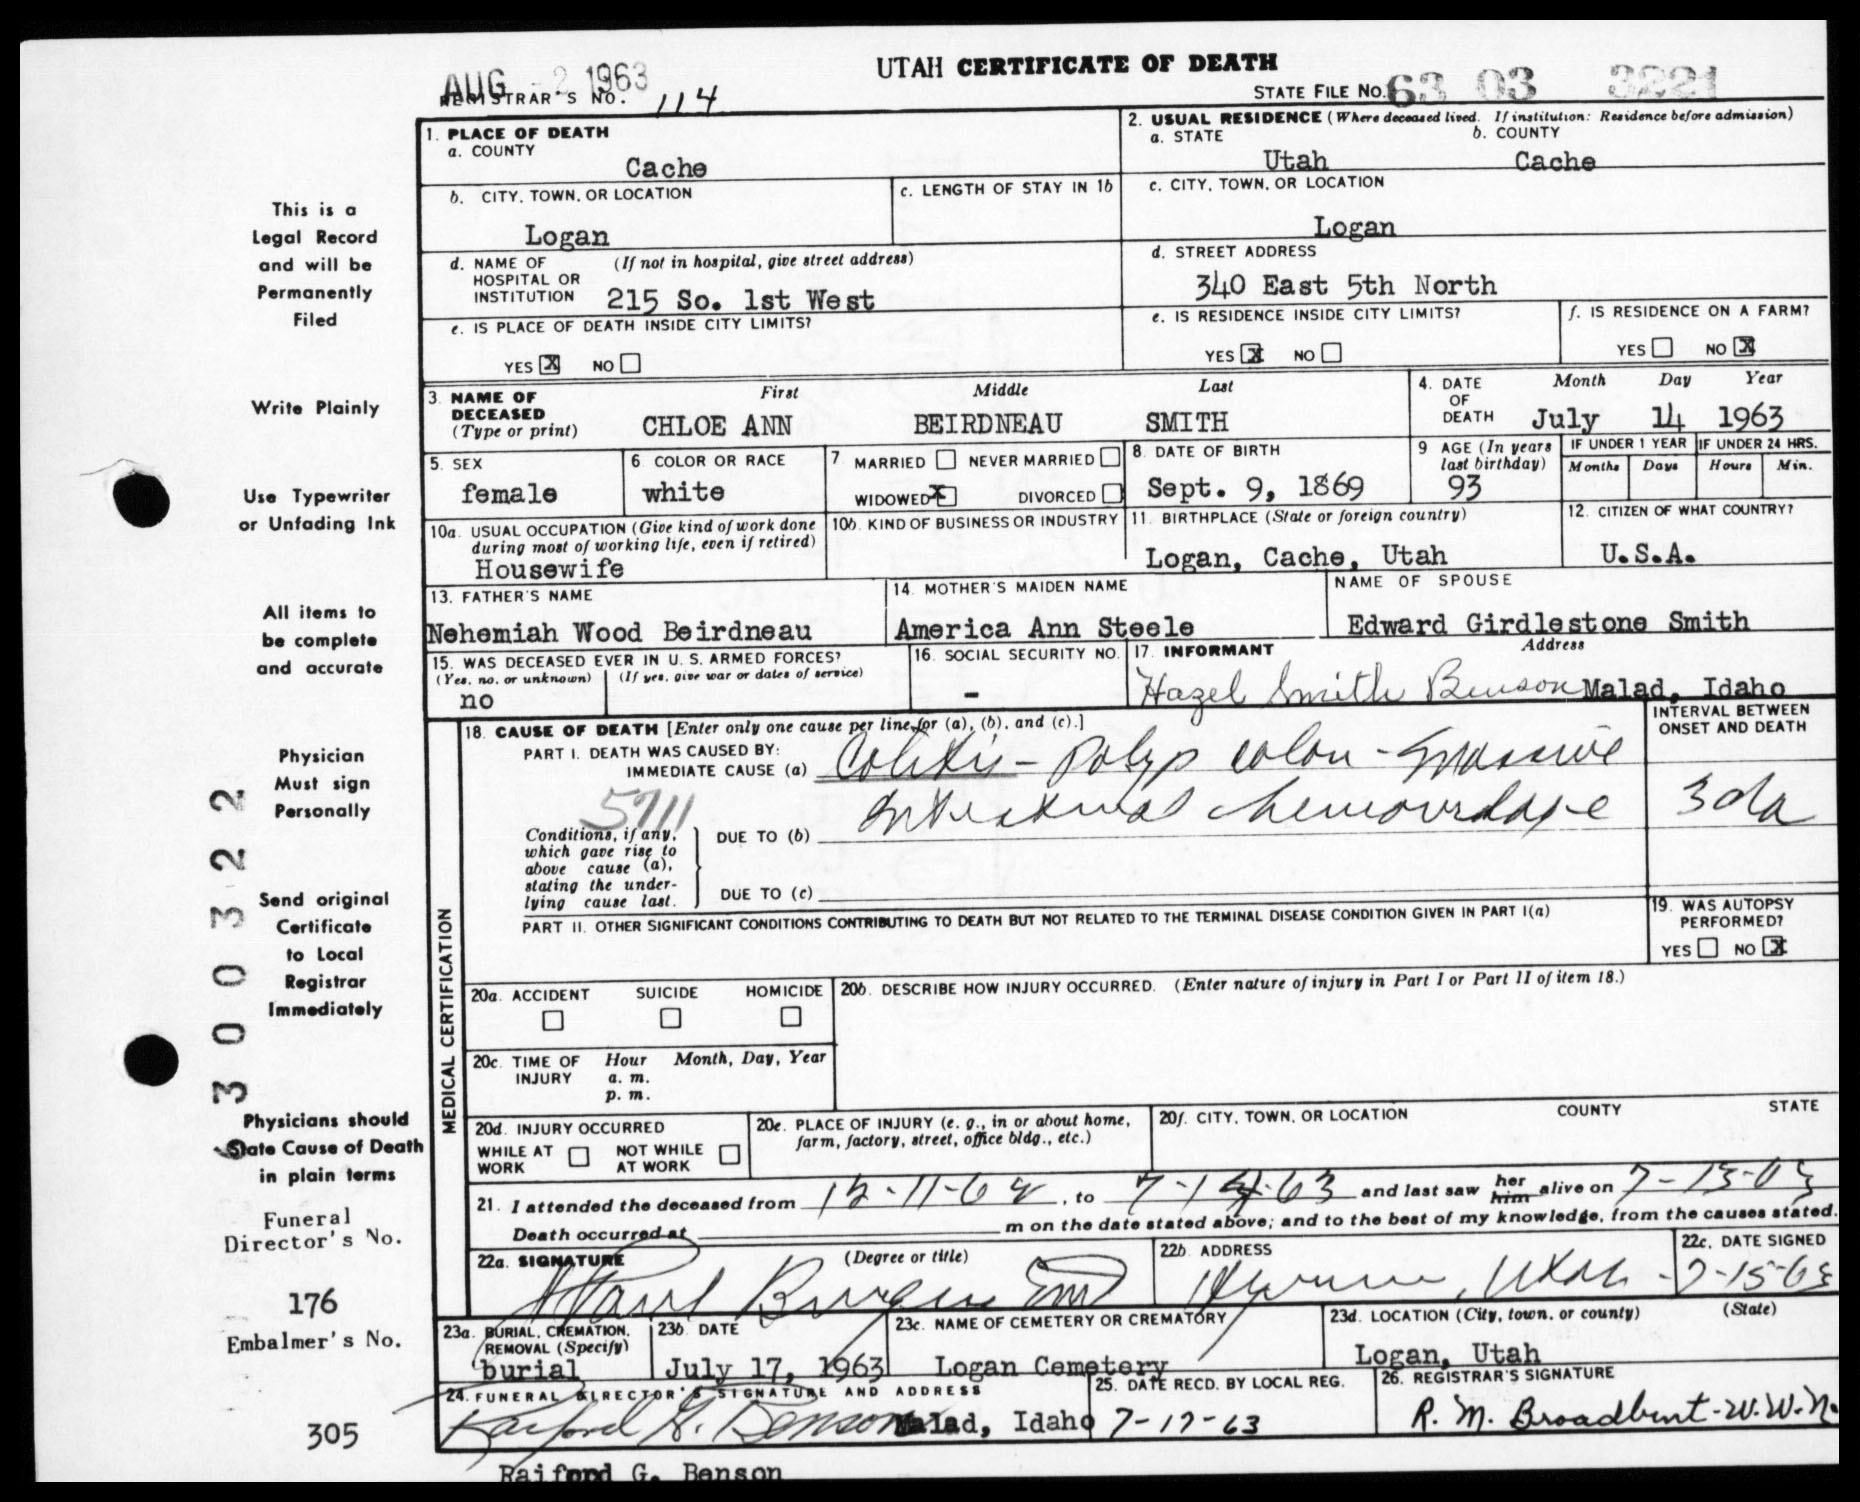 UTAH CERTIFICATE OF DEATH
AUG - 2 1963
REGISTRAR'S NO. 114
STATE FILE NO. 63 03 3221
1. PLACE OF DEATH
a. COUNTY
Cache
2. USUAL RESIDENCE (Where deceased lived. If institution: Residence before admission)
a. STATE b. COUNTY
Utah Cache
b. CITY, TOWN, OR LOCATION
Logan
c. LENGTH OF STAY IN 1b
c. CITY, TOWN, OR LOCATION
Logan
d. NAME OF HOSPITAL OR INSTITUTION (If not in hospital, give street address)
215 So. 1st West
d. STREET ADDRESS
340 East 5th North
e. IS PLACE OF DEATH INSIDE CITY LIMITS?
YES X NO
e. IS RESIDENCE INSIDE CITY LIMITS?
YES X NO
f. IS RESIDENCE ON A FARM?
YES NO X
3. NAME OF DECEASED (Type or print)
First Middle Last
CHLOE ANN BEIRDNEAU SMITH
4. DATE OF DEATH Month Day Year
July 14 1963
5. SEX
female
6 COLOR OR RACE
white
7 MARRIED NEVER MARRIED
WIDOWED X DIVORCED
8. DATE OF BIRTH
Sept. 9, 1869
9 AGE (In years last birthday)
93
IF UNDER 1 YEAR IF UNDER 24 HRS.
Months Days Hours Min.
10a. USUAL OCCUPATION (Give kind of work done during most of working life, even if retired)
Housewife
10b. KIND OF BUSINESS OR INDUSTRY
11. BIRTHPLACE (State or foreign country)
Logan, Cache, Utah
12. CITIZEN OF WHAT COUNTRY?
U.S.A.
13. FATHER'S NAME
Nehemiah Wood Beirdneau
14. MOTHER'S MAIDEN NAME
America Ann Steele
NAME OF SPOUSE
Edward Girdlestone Smith
15. WAS DECEASED EVER IN U. S. ARMED FORCES?
(Yes, no, or unknown) (If yes, give war or dates of service)
no
16. SOCIAL SECURITY NO.
-
17. INFORMANT Address
Hazel Smith Benson Malad, Idaho
MEDICAL CERTIFICATION
18. CAUSE OF DEATH [Enter only one cause per line for (a), (b), and (c).]
INTERVAL BETWEEN ONSET AND DEATH
PART I. DEATH WAS CAUSED BY:
IMMEDIATE CAUSE (a) Colitis - Polyp colon - massive
intestinal hemorrhage 3 da
5711
Conditions, if any, which gave rise to above cause (a), stating the underlying cause last.
DUE TO (b)
DUE TO (c)
PART II. OTHER SIGNIFICANT CONDITIONS CONTRIBUTING TO DEATH BUT NOT RELATED TO THE TERMINAL DISEASE CONDITION GIVEN IN PART I(a)
19. WAS AUTOPSY PERFORMED?
YES NO X
20a. ACCIDENT SUICIDE HOMICIDE
20b. DESCRIBE HOW INJURY OCCURRED. (Enter nature of injury in Part I or Part II of item 18.)
20c. TIME OF INJURY Hour Month, Day, Year
a. m.
p. m.
20d. INJURY OCCURRED
WHILE AT WORK NOT WHILE AT WORK
20e. PLACE OF INJURY (e. g., in or about home, farm, factory, street, office bldg., etc.)
20f. CITY, TOWN, OR LOCATION COUNTY STATE
21. I attended the deceased from 12-11-62, to 7-14-63 and last saw her him alive on 7-13-63
Death occurred at m on the date stated above; and to the best of my knowledge, from the causes stated.
22a. SIGNATURE (Degree or title)
22b. ADDRESS
Hyrum, Utah
22c. DATE SIGNED
7-15-63
23a. BURIAL, CREMATION, REMOVAL (Specify)
burial
23b. DATE
July 17, 1963
23c. NAME OF CEMETERY OR CREMATORY
Logan Cemetery
23d. LOCATION (City, town, or county) (State)
Logan, Utah
24. FUNERAL DIRECTOR'S SIGNATURE AND ADDRESS
Raiford G. Benson Malad, Idaho
Raiford G. Benson
25. DATE RECD. BY LOCAL REG.
7-17-63
26. REGISTRAR'S SIGNATURE
R. M. Broadbent - W.W.N.
This is a
Legal Record
and will be
Permanently
Filed
Write Plainly
Use Typewriter
or Unfading Ink
All items to
be complete
and accurate
Physician
Must sign
Personally
Send original
Certificate
to Local
Registrar
Immediately
Physicians should
State Cause of Death
in plain terms
Funeral
Director's No.
176
Embalmer's No.
305
3 0 0 3 2 2